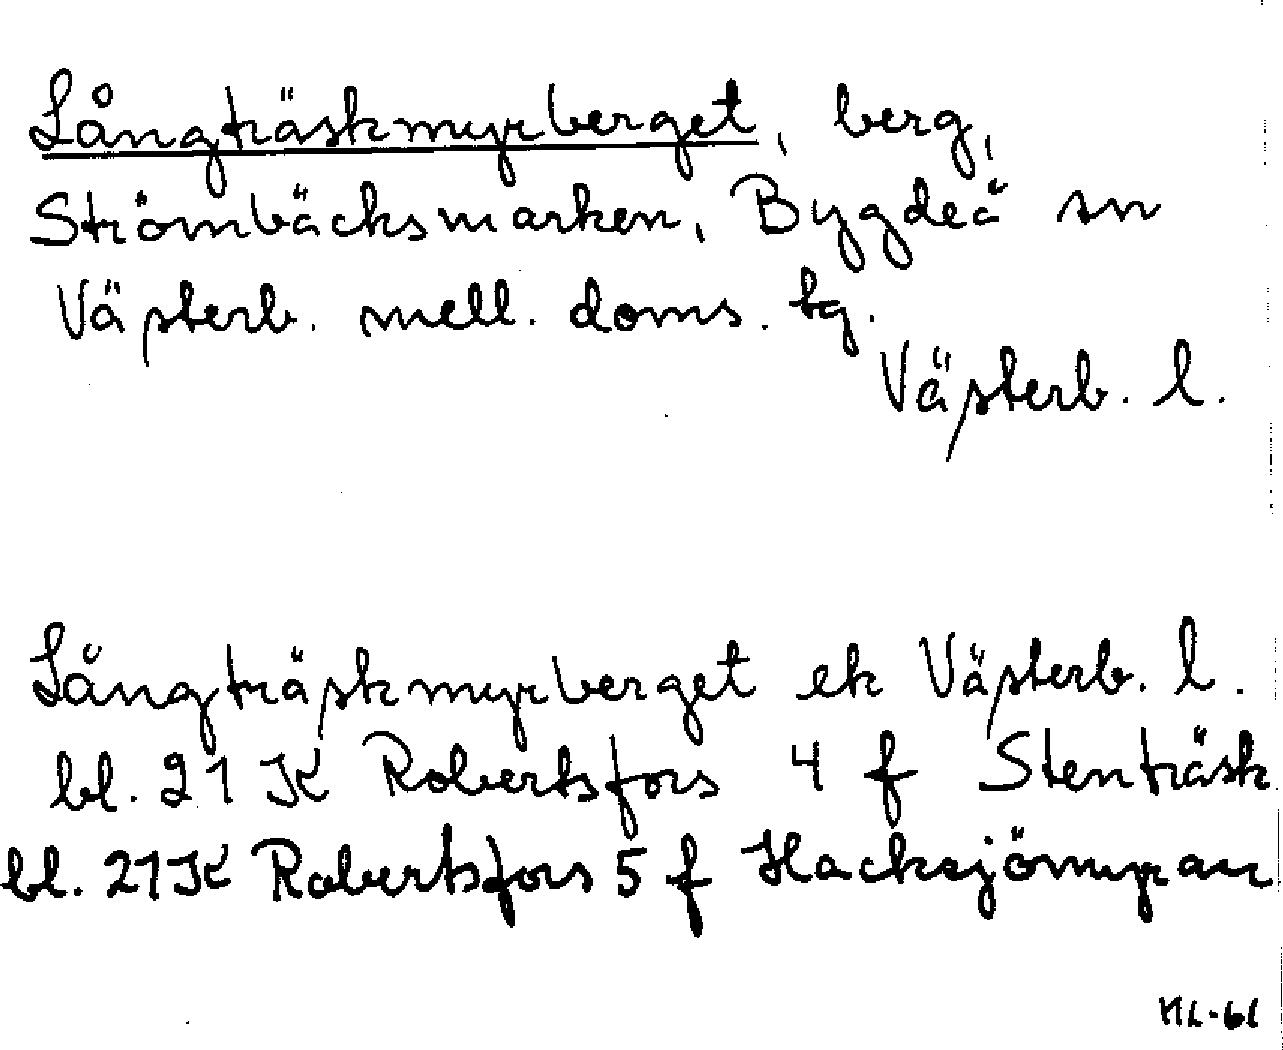 Långträskmyrberget, berg,
Strömbäcksmarken, Bygdeå sn
Västerb. mell. doms. tg.
Västerb. l.
Långträskmyrberget ek Västerb. l.
bl. 21 K Robertsfors 4 f Stenträsk
bl. 21 K Robertsfors 5 f Hacksjömyran